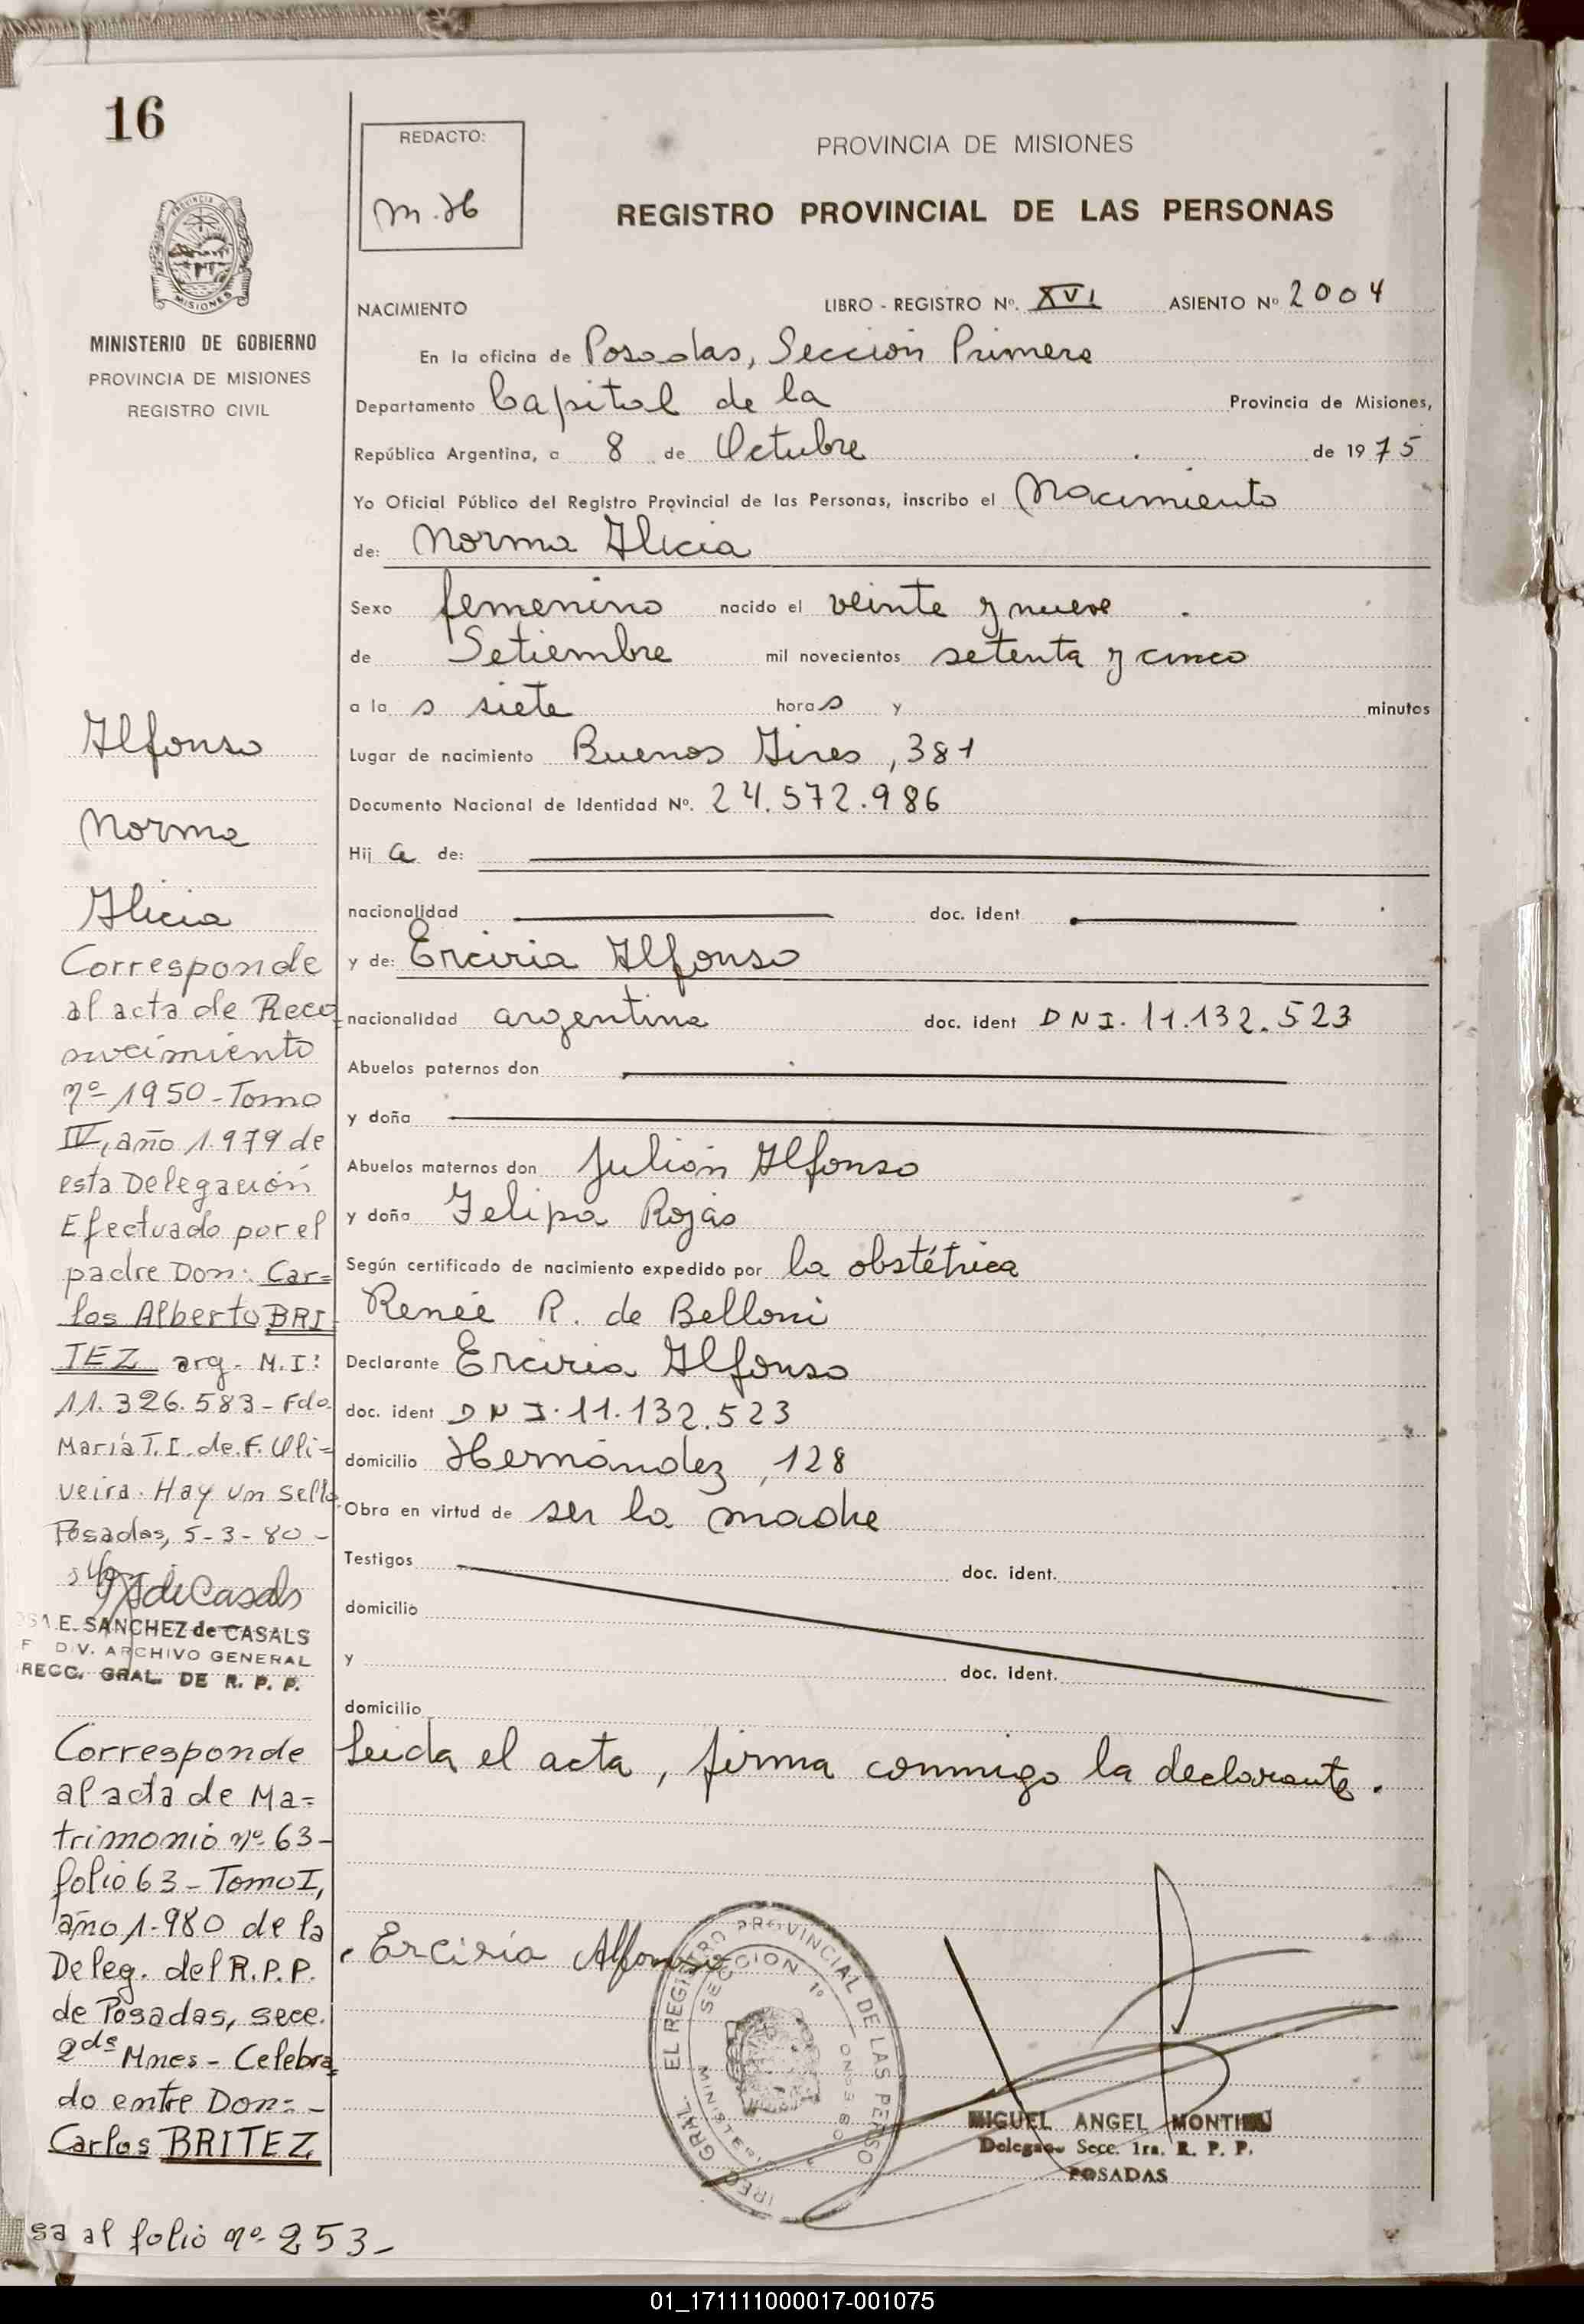 16
REDACTO:
M.H
PROVINCIA DE MISIONES
REGISTRO PROVINCIAL DE LAS PERSONAS
MISIONES
MINISTERIO DE GOBIERNO
PROVINCIA DE MISIONES
REGISTRO CIVIL
NACIMIENTO LIBRO - REGISTRO Nº. XVI ASIENTO Nº 2004
En la oficina de Posadas, Sección Primera
Departamento Capital de la Provincia de Misiones,
República Argentina, a 8 de Octubre de 1975
Yo Oficial Público del Registro Provincial de las Personas, inscribo el Nacimiento
de: Norma Alicia
Sexo femenino nacido el veinte y nueve
de Setiembre mil novecientos setenta y cinco
a la s siete horas y minutos
Lugar de nacimiento Buenos Aires, 381
Documento Nacional de Identidad Nº. 24.572.986
Hij a de:
nacionalidad doc. ident
y de: Erciria Alfonso
nacionalidad argentina doc. ident DNI. 11.132.523
Abuelos paternos don
y doña
Abuelos maternos don Julián Alfonso
y doña Felipa Rojas
Según certificado de nacimiento expedido por la obstétrica
Renée R. de Belloni
Declarante Erciria Alfonso
doc. ident DNI. 11.132.523
domicilio Hernández, 128
Obra en virtud de ser la madre
Testigos doc. ident.
domicilio
y doc. ident.
domicilio
Leida el acta, firma conmigo la declarante.
Erciria Alfonso
EL REGISTRO PROVINCIAL DE LAS PERSO
SECCION 1º
MIGUEL ANGEL MONTIEL
Delegado Secc. 1ra. R. P. P.
POSADAS
Alfonso
Norma
Alicia
Corresponde
al acta de Reco
nocimiento
nº 1950 - Tomo
IV, año 1.979 de
esta Delegación
Efectuado por el
padre Don: Car=
los Alberto BRI
TEZ arg. M.I:
11.326.583 - Fdo.
María T. I. de F. Oli=
veira. Hay un sello
Posadas, 5-3-80 -
de Casals
SA E. SANCHEZ de CASALS
F DIV. ARCHIVO GENERAL
RECC. GRAL. DE R. P. P.
Corresponde
al acta de Ma=
trimonio nº 63 -
folio 63 - Tomo I,
año 1.980 de la
Deleg. del R.P.P.
de Posadas, secc.
2da Mnes - Celebra=
do entre Don: -
Carlos BRITEZ
sa al folio nº 253 -
01_171111000017-001075